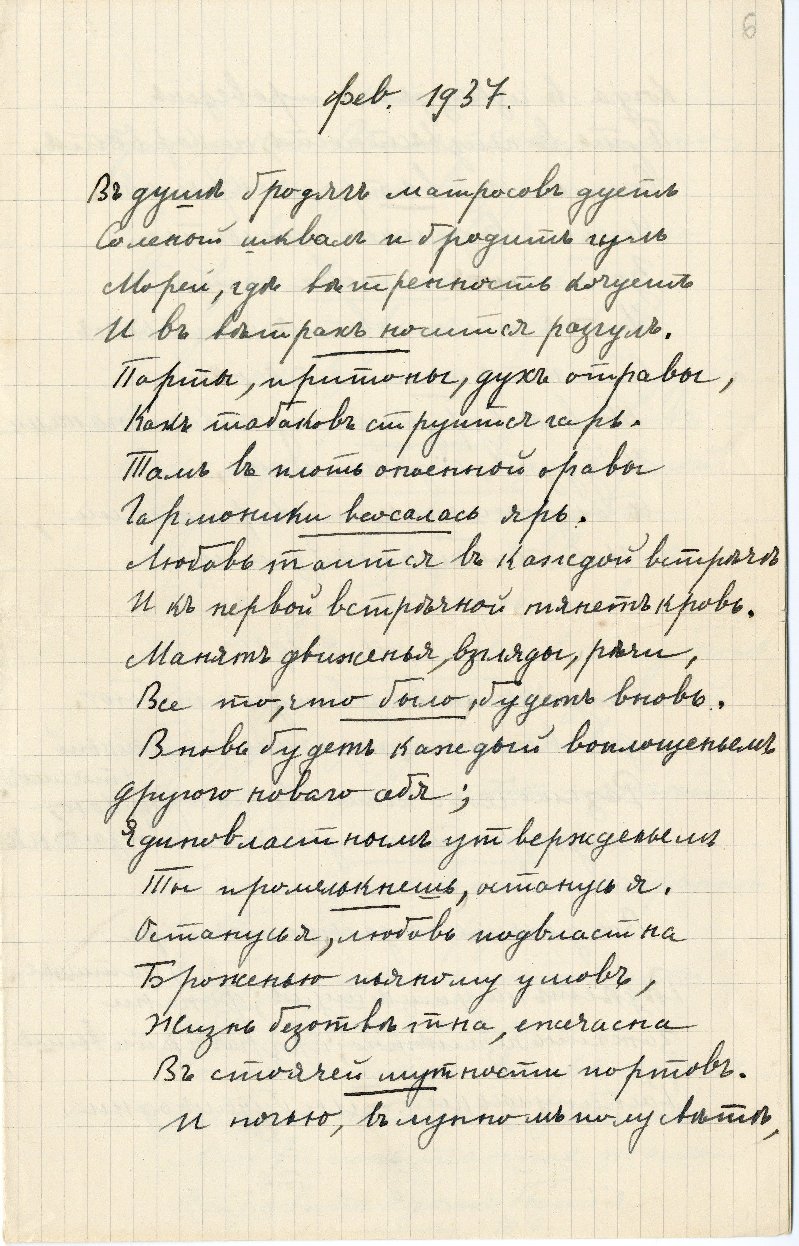 6
фев. 1937.
Въ душѣ бродягъ матросовъ дуетъ
Соленый шквалъ и бродитъ гулъ
Морей, гдѣ вѣтренность кочуетъ
И въ вѣтрахъ носится разгулъ.
Порты, притоны, духъ отравы,
Какъ табаковъ струится гарь.
Тамъ въ плоть опоенной оравы
Гармоники всосалась ярь.
Любовь таится въ каждой встрѣчѣ
И къ первой встрѣчной тянетъ кровь.
Манятъ движенья, взгляды, рѣчи,
Все то, что было, будетъ вновь.
Вновь будетъ каждый воплощеньемъ
Другого новаго себя;
Единовластнымъ утвержденьемъ
Ты промелькнешь, останусь я.
Останусь я, любовь подвластна
Броженью пьяному умовъ,
Жизнь безотвѣтна, ежечасна
Въ стоячей мутности портовъ.
И ночью, въ лунномъ полусвѣтѣ,